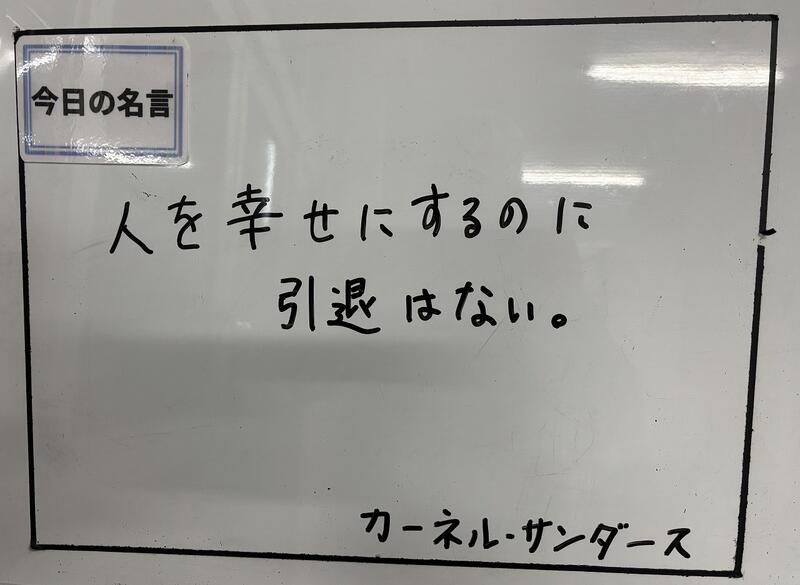 今日の名言
人を幸せにするのに
引退はない。
カーネル・サンダース